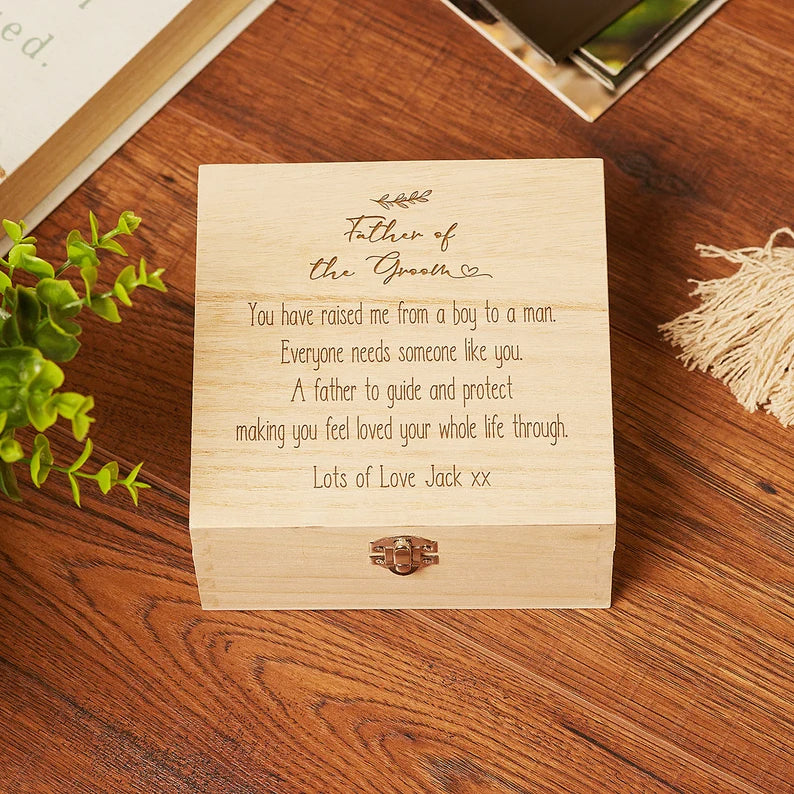 ed.
Father of
the Groom
You have raised me from a boy to a man.
Everyone needs someone like you.
A father to guide and protect
making you feel loved your whole life through.
Lots of Love Jack xx